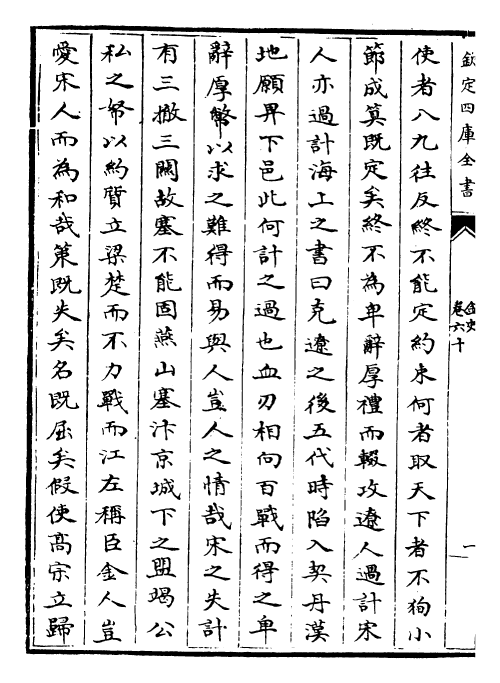 欽定四庫全書
金史
卷六十
一
使者八九往反終不能定約束何者取天下者不狥小
節成算既定矣終不為卑辭厚禮而輟攻遼人過計宋
人亦過計海上之書曰克遼之後五代時陷入契丹漢
地願畀下邑此何計之過也血刃相向百戰而得之卑
辭厚幣以求之難得而易與人豈人之情哉宋之失計
有三撤三關故塞不能固燕山塞汴京城下之盟竭公
私之帑以約質立梁楚而不力戰而江左稱臣金人豈
愛宋人而為和哉策既失矣名既屈矣假使高宗立歸